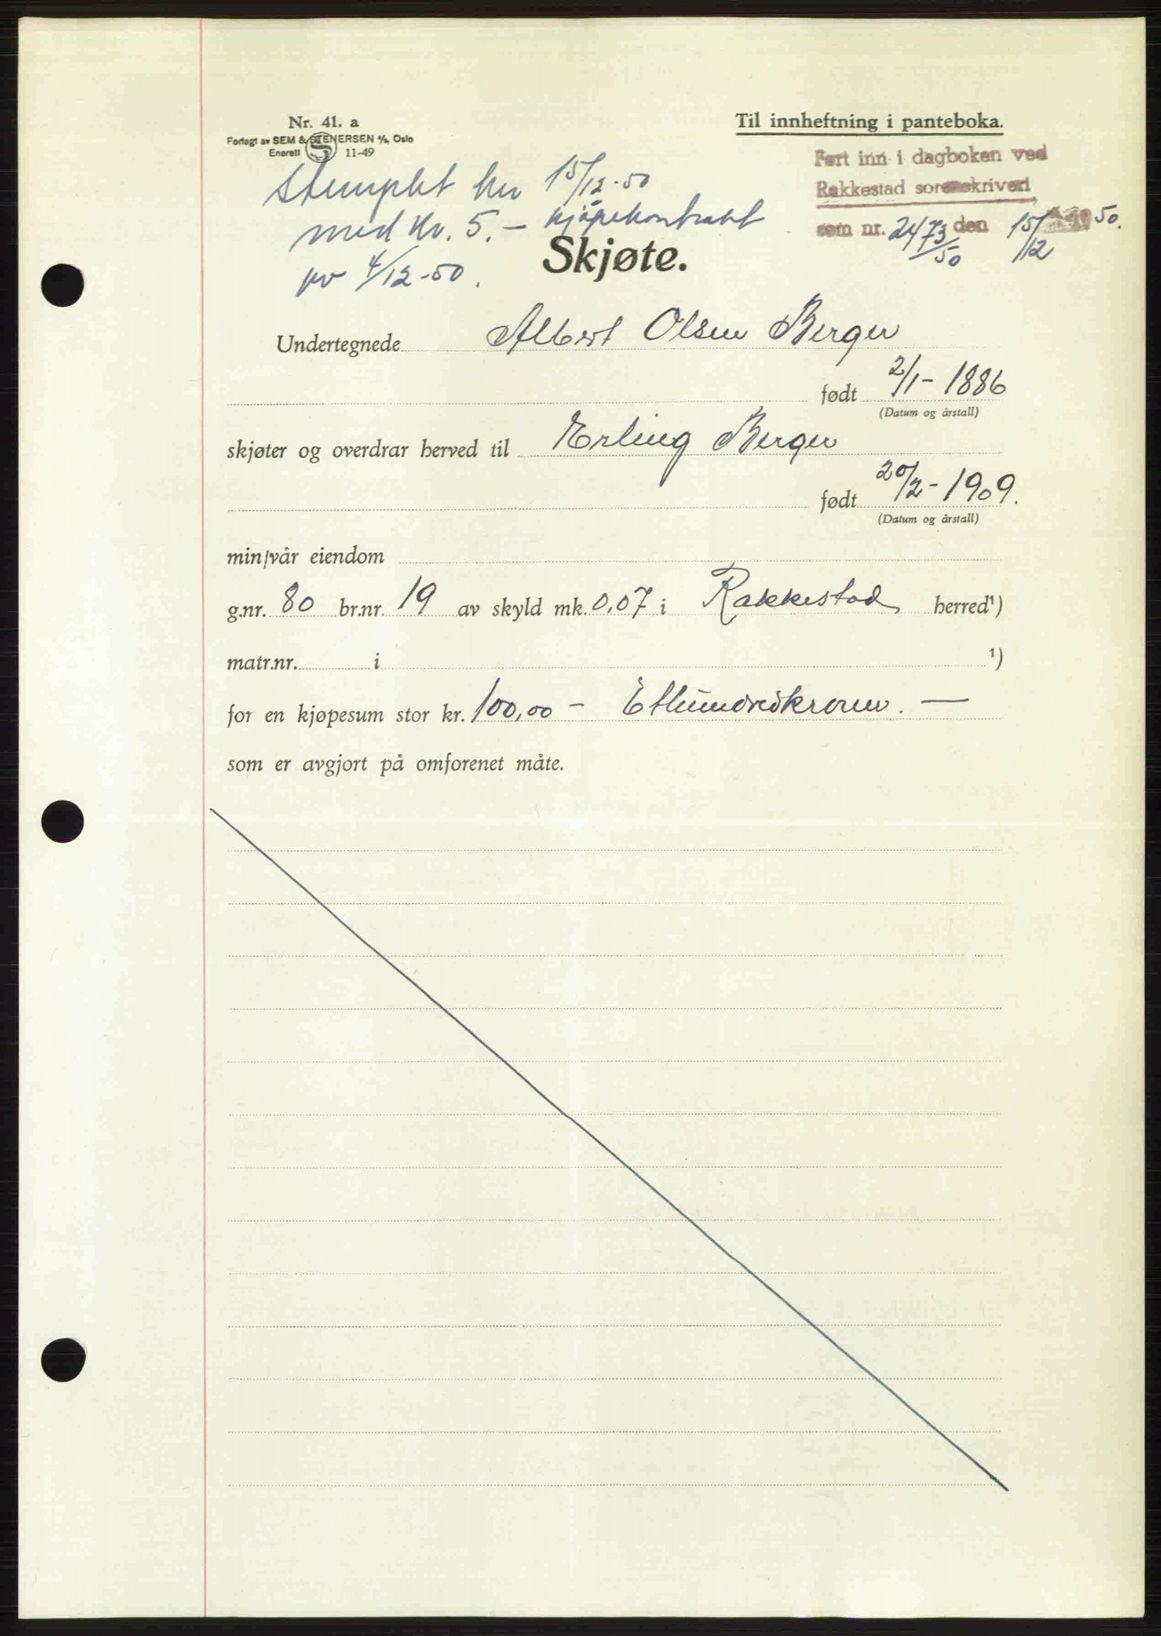 Nr. 41. a
Forlagt av SEM & STENERSEN A/S, Oslo
Enerett 11-49
Til innheftning i panteboka.
Ført inn i dagboken ved
Rakkestad sorenskriveri
som nr. 2473/50 den 15/12 50.
Stemplet her 15/12-50
med kr. 5.- kjøpekontrakt
av 4/12-50.
Skjøte.
Undertegnede Albert Olsen Berger
født 2/1-1886
(Datum og årstall)
skjøter og overdrar herved til Erling Berger
født 20/2-1909.
(Datum og årstall)
min/vår eiendom
g.nr. 80 br.nr. 19 av skyld mk. 0,07 i Rakkestad herred¹)
matr.nr. i ¹)
for en kjøpesum stor kr. 100,00 - Etthundredkroner. —
som er avgjort på omforenet måte.